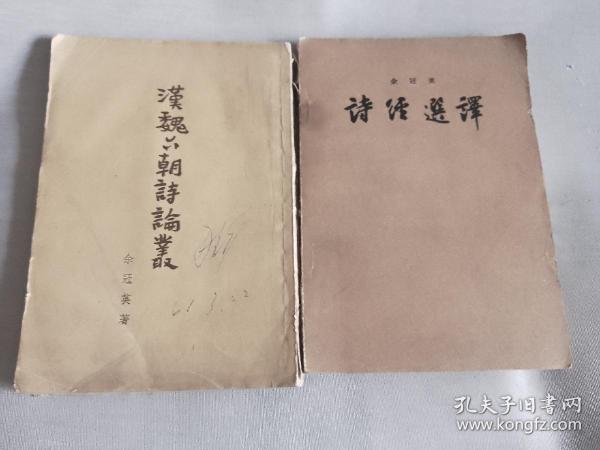 漢魏六朝詩論叢
余冠英著
61.3.22
余冠英
詩經選譯
孔夫子旧书网
www.kongfz.com